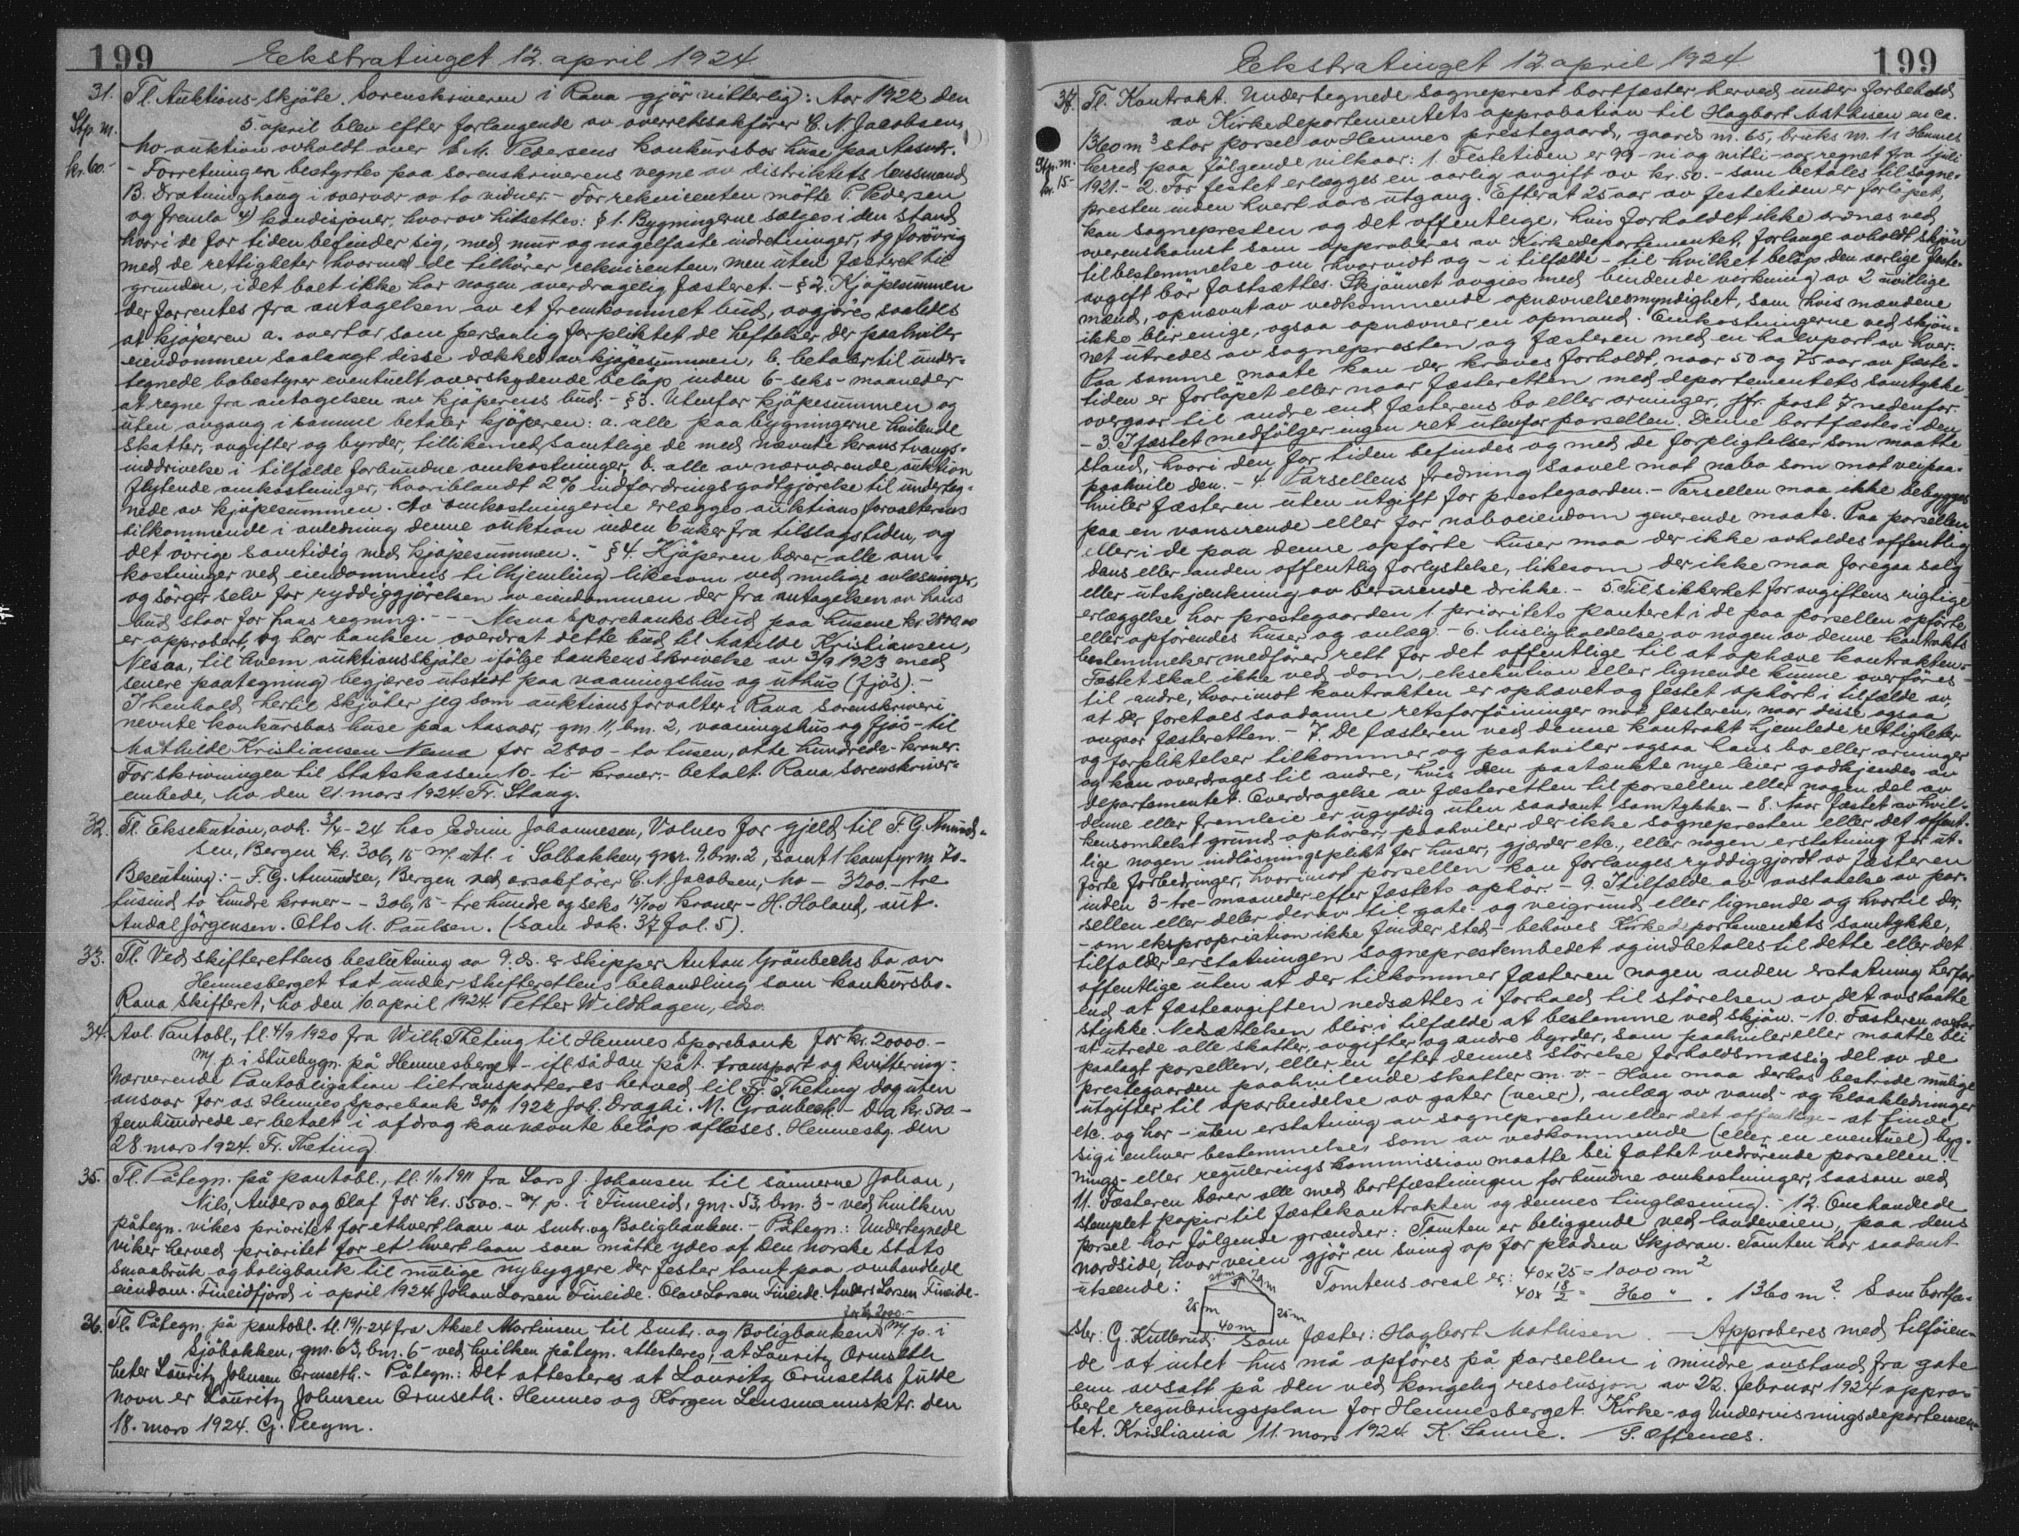 199
Ekstratinget 12. april 1924.
31. Tl. Auktions-skjöte. Sorenskriveren i Rana gjör vitterlig: Aar 1922 den
Stp. m. 5 april blev efter forlangende av overretssakförer C. N. Jacobsen,
kr. 60.- Mo auktion avholdt over C. M. Pedersens konkursbos huse paa Aasvær.
- Forretningen bestyrtes paa sorenskriverens vegne av distriktets lensmand
B. Dratninghaug i overvær av to vidner. - For rekvirenten mötte P. Pedersen
og fremla 4) kondisjoner, hvorav hitsettes: § 1. Bygningerne sælges i den stand
hvori de for tiden befinder sig, med mur og nagelfaste indretninger, og forövrig
med de rettigheter hvormed de tilhörer rekvirenten, men uten fæsteret til
grunden, idet boet ikke har nogen overdragelig fæsteret. - § 2. Kjöpesummen
der forrentes fra antagelsen av et fremkommet bud, avgjöres saaledes
at kjöperen a. overtar som personlig forpliktet de heftelser der paahviler
eiendommen saalangt disse dækkes av kjöpesummen, b. betaler til under-
tegnede bobestyrer eventuelt overskydende belöp inden 6-seks-maaneder
at regne fra antagelsen av kjöperens bud. - § 3. Utenfor kjöpesummen og
uten avgang i samme betaler kjöperen: a. alle paa bygningerne hvilende
skatter, avgifter og byrder, tillikemed samtlige de med nævnte kravs tvangs-
inddrivelse i tilfælde forbundne omkostninger, b. alle av nærværende auktion
flytende omkostninger, hvoriblandt 2 % indfordringsgodtgjörelse til underteg-
nede av kjöpesummen. Av omkostningerne erlægges auktionsforvalterens
tilkommende i anledning denne auktion inden 6 uker fra tilslagstiden, og
det övrige samtidig med kjöpesummen. - § 4. Kjöperen bærer alle om-
kostninger ved eiendommens tilhjemling likesom ved mulige avlæsninger,
og sörger selv for ryddiggjörelsen av eiendommen der fra antagelsen av hans
bud staar for hans regning. - - Nesna Sparebanks bud paa husene kr. 2800.00
er approbert, og har banken overdrat dette bud til Matilde Kristiansen,
Nesna, til hvem auktionsskjöte ifölge bankens skrivelse av 3/9 1923 med
senere paategning begjæres utstedt paa vaaningshus og uthus (fjös). -
I henhold hertil skjöter jeg som auktionsforvalter i Rana sorenskriveri
nevnte konkursbos huse paa Aasvær, gnr. 11, bnr. 2, vaaningshus og fjös - til
Mathilde Kristiansen Nesna for 2800 - to tusen, otte hundrede - kroner.
For skrivningen til Statskassen 10 - ti kroner. - betalt. Rana Sorenskriver-
embede, Mo den 21. mars 1924. Fr. Stang.
32. Tl. Eksekution, avh. 3/4-24 hos Edvin Johannesen, Valnes for gjeld til F. G. Amund-
sen, Bergen kr. 306,15 m/ utl. i Solbakken, gnr. 9, bnr. 2, samt 1 komfyr m. 70-
Beslutning: - F. G. Amundsen, Bergen ved orsakförer C. N. Jacobsen, Mo - 3200.- tre
tusind to hundre kroner - - 306,15 - tre hundre og seks 15/100 kroner - H. Holand, aut.
Andal Jörgensen. Otto M. Paulsen. (sam dok. 37 fol. 5).
33. Tl. Ved skifterettens beslutning av 9. ds. er skipper Anton Grönbechs bo av
Hemnesberget tat under skifterettens behandling som konkursbo.
Rana skifteret, Mo den 10 april 1924. Petter Wildhagen, cso.
34. Avl. Pantobl., tl. 4/9 1920 fra Wilh. Theting til Hemnes Sparebank for kr. 20000.-
m/ p. i stuebygn. på Hemnesberget - ifl. sådan påt. transport og kvittering:
Nærverende Pantobligation tiltransporteres herved til Fr. Theting dog uten
ansvar for os. Hemnes Sparebank 30/11 1922 Joh. Draghi. M. Grönbech. - Da kr. 500 -
femhundrede er betalt i afdrag kan nævnte beløp aflæses. Hemnesbg. den
28. mars 1924. Fr. Theting.
35. Tl. Påtegn. på pantobl., tl. 1/11 1911 fra Lars J. Johansen til sønnerne Johan,
Nils, Anders og Olaf for kr. 5500.- m/ p. i Finneid, gnr. 53, bnr. 3 - ved hvilken
påtegn. vikes prioritet for ethvert laan av Smbr. og Boligbanken. - Påtegn.: Undertegnede
viker herved prioritet for et hvert laan som måtte ydes af Den norske Stats
Smaabruk og boligbank til mulige nybyggere der fester tomt paa omhandlede
eiendom. Fineidfjord i april 1924 Johan Larsen Fineide. Olav Larsen Fineide. Anders Larsen Fineide.
36. Tl. Påtegn. på pantobl. tl. 19/1-24 fra Aksel Martinsen til Smbr. og Boligbanken for kr. 2000.- m/ p. i
Sjöbakken, gnr. 63, bnr. 6 - ved hvilken påtegn. attesteres, at Lauritz Ormseth
heter Lauritz Johnsen Ormseth. - Påtegn.: Det attesteres at Lauritz Ormseths fulde
navn er Lauritz Johnsen Ormseth. Hemnes og Korgen Lensmannsktr. den
18. mars 1924. G. Pleym.
199
Ekstratinget 12 april 1924.
37. Tl. Kontrakt. Undertegnede sogneprest bortfæster herved under forbehold
av Kirkedepartementets approbation til Hagbart Mathisen en ca.
1360 m³ stor parsel av Hemnes prestegaard, gaards nr. 65, bruks nr. 1 i Hemnes
Stp. m. herred paa følgende vilkaar: 1. Festetiden er 99 - ni og nitti - aar regnet fra 1 juli
kr. 15- 1921. - 2. For festet erlægges en aarlig avgift av kr. 50.- som betales til sogne-
presten inden hvert aars utgang. Efterat 25 aar av festetiden er forløpet,
kan sognepresten og det offentlige, hvis forholdet ikke ordnes ved
overenskomst som approberes av Kirkedepartementet, forlange avholdt skjön
til bestemmelse om hvorvidt og - i tilfælde - til hvilket belöp den aarlige feste-
avgift bör fastsættes. Skjönnet avgies med bindende virkning av 2 uvillige
mænd, opnævnt av vedkommende opnævnelsesmyndighet, som hvis mændene
ikke blir enige, ogsaa opnævner en opmand. Omkostningerne ved skjön-
net utredes av sognepresten og fæsteren med en halvpart av hver.
Paa samme maate kan der kræves forholdt, naar 50 og 75 aar av feste-
tiden er forløpet eller naar fæsteretten med departementets samtykke
overgaar til andre end fæsterens bo eller arvinger, jfr. post 7 nedenfor.
- 3. I fæstet medfölger ingen ret utenfor parsellen. Denne bortfæstes i den
stand, hvori den for tiden befindes og med de forpligtelser som maatte
paahvile den. - 4. Parsellens fredning saavel mot nabo som mot vei paa-
hviler fæsteren uten utgift for prestegaarden. - Parsellen maa ikke bebygges
paa en vansirende eller for naboeiendom generende maate. Paa parsellen
eller i de paa denne opförte huser maa der ikke avholdes offentlig
dans eller anden offentlig forlystelse, likesom der ikke maa foregaa salg
eller utskjænkning av berusende drikke. - 5. Til sikkerhet for avgiftens rigtige
erlæggelse har prestegaarden 1 prioritets panteret i de paa parsellen opførte
eller opförendes huser og anlæg. - 6. Misligholdelse av nogen av denne kontrakts
bestemmelser medfører rett for det offentlige til at ophæve kontrakten.
Fæstet skal ikke ved dom, eksekution eller lignende kunne overföres
til andre, hvorimot kontrakten er ophævet og festet ophört i tilfælde av,
at der foretaes saadanne retsforföininger mot fæsteren, naar disse ogsaa
angaar fæsteretten. - 7. De fæsteren ved denne kontrakt hjemlede rettigheter
og forpliktelser tilkommer og paahviler ogsaa hans bo eller arvinger
og kan overdrages til andre, hvis den paatænkte nye leier godkjendes av
departementet. Overdragelse av fæsteretten til parsellen eller nogen del av
denne eller fremleie er ugyldig uten saadant samtykke. - 8. Naar fæstet av hvil-
kensomhelst grund ophører, paahviler der ikke sognepresten eller det offent-
lige nogen indlösningsplikt for huser, gjærder etc., eller nogen erstatning for ut-
förte forbedringer, hvorimot parsellen kan forlanges ryddiggjort av fæsteren
inden 3-tre-maaneder efter fæstets ophør. - 9. I tilfælde av avstaaelse av par-
sellen eller deler derav til gate- og veigrund eller lignende og hvortil der,
- om ekspropriation ikke finder sted - behöves Kirkedepartementets samtykke,
tilfalder erstatningen sogneprestembedet og indbetales til dette eller det
offentlige uten at der tilkommer fæsteren nogen anden erstatning herfor
end at fæsteavgiften nedsættes i forhold til störelsen av det avstaatte
stykke. Nedsættelsen blir i tilfælde at bestemme ved skjön. - 10. Fæsteren
at utrede alle skatter, avgifter og andre byrder, som paahviler eller maatte bli
paalagt parsellen, eller en efter dennes störelse forholdsmæssig del av de
prestegaarden paahvilende skatter m. v. - Han maa derhos bestride mulige
utgifter til oparbeidelse av gater (veier), anlæg av vand- og kloakledninger
etc. og har - uten erstatning av sognepresten eller det offentlige - at finde
sig i enhver bestemmelse, som av vedkommende (eller en eventuel) byg-
nings- eller reguleringskommission maatte bli fattet vedrørende parsellen. -
11. Fæsteren bærer alle med bortfæstningen forbundne omkostninger, saasom ved
stemplet papir til fæstekontrakten og dennes tinglæsning. - 12. Omhandlede
parsel har følgende grændser: Tomten er beliggende ved landeveien, paa dens
nordside, hvor veien gjör en sving op for pladsen Skjæran. Tomten har saadant
utseende: 25 m 40 m 25 m Tomtens areal er: 40 x 25 = 1000 m²
40 x 18/2 = 360 " . 1360 m². Som bortfæ-
ster: G. Kullerud. Som fæster: Hagbart Mathisen. - Approberes med tilföien-
de at intet hus må opføres på parsellen i mindre avstand fra gate
enn avsatt på den ved kongelig resolusjon av 22. februar 1924 appro-
berte reguleringsplan for Hemnesberget. Kirke- og Undervisningsdepartemen-
tet. Kristiania 11. mars 1924. K. Sanne. S. Oftenæs.